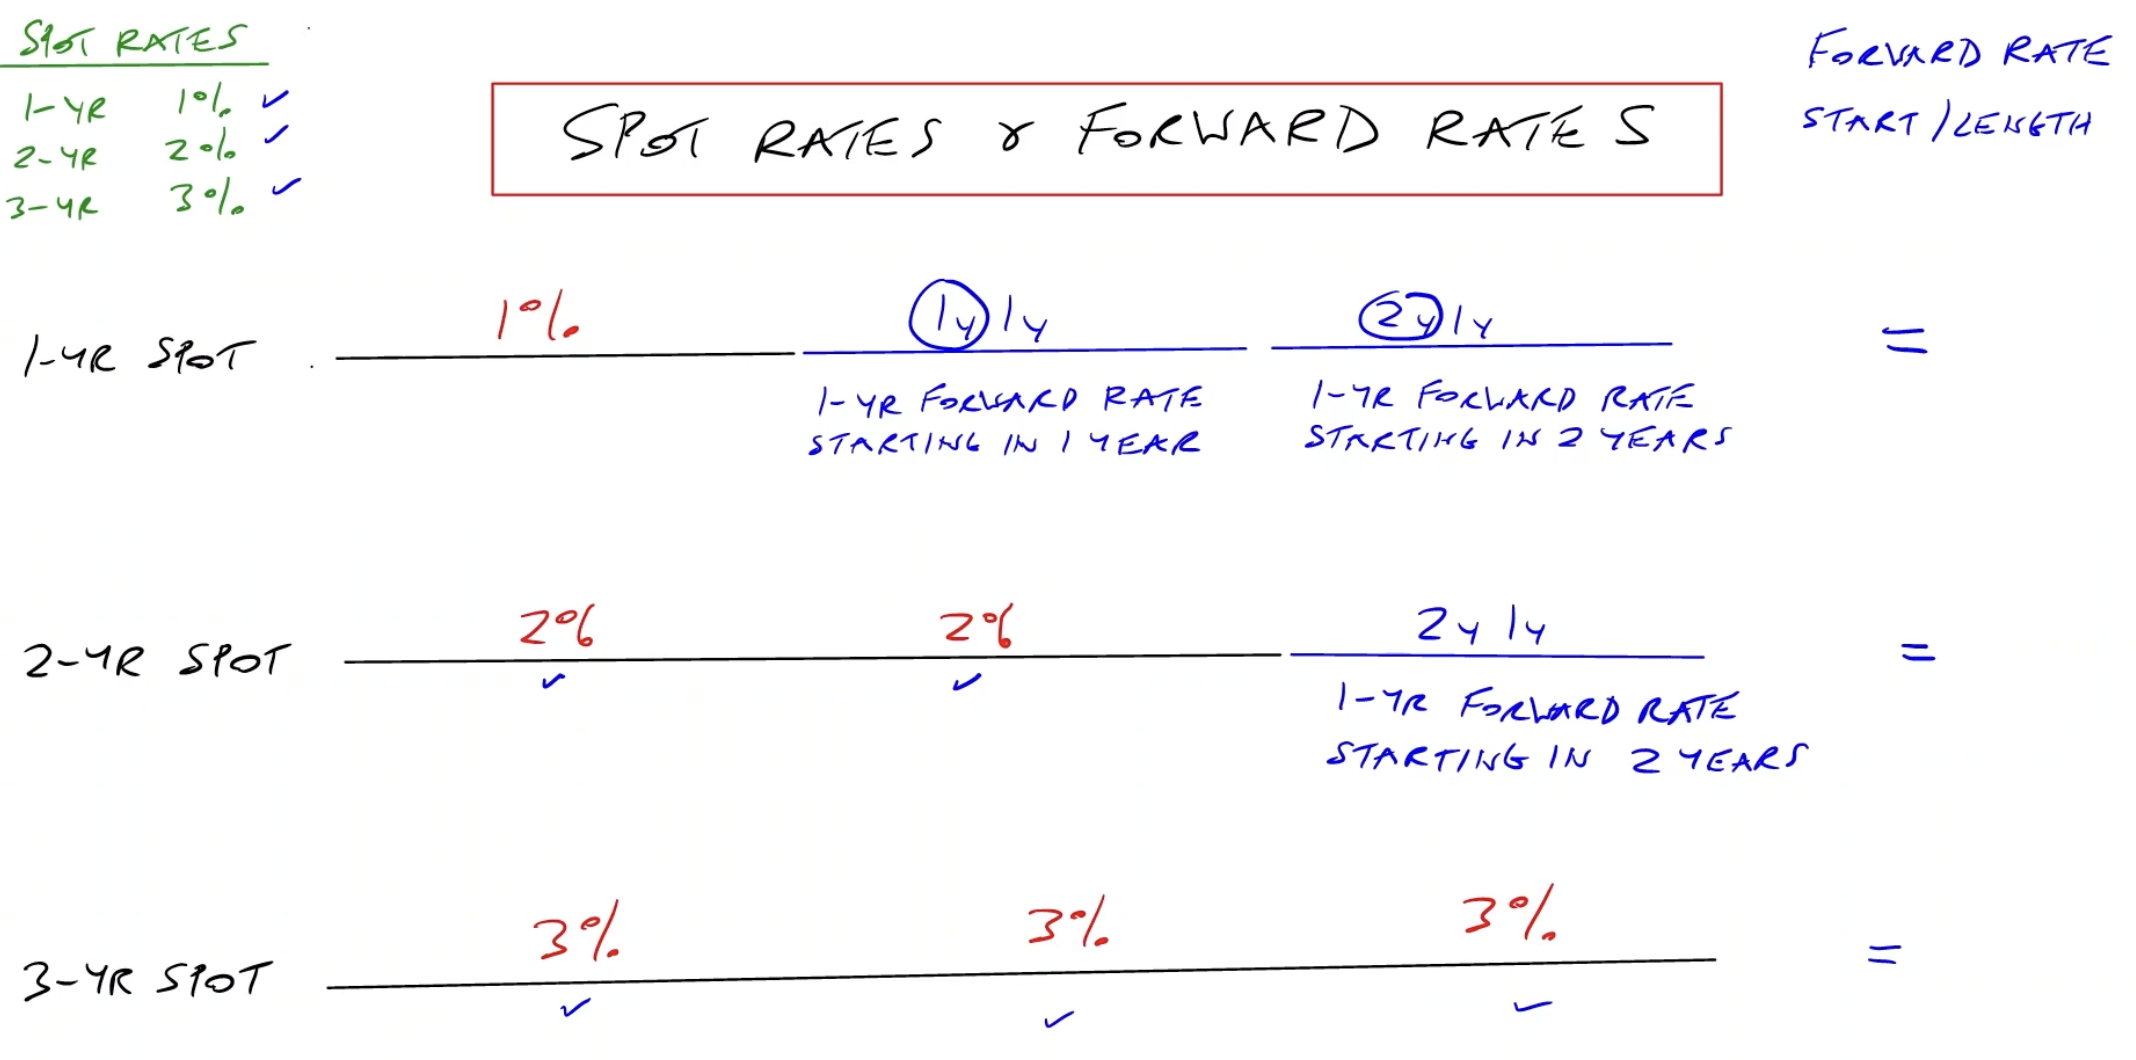 SPOT RATES
1-YR 1%
2-YR 2%
3-YR 3%
SPOT RATES & FORWARD RATES
FORWARD RATE
START/LENGTH
1-YR SPOT 1% 1y1y 2y1y =
1-YR FORWARD RATE
STARTING IN 1 YEAR
1-YR FORWARD RATE
STARTING IN 2 YEARS
2-YR SPOT 2% 2% 2y1y =
1-YR FORWARD RATE
STARTING IN 2 YEARS
3-YR SPOT 3% 3% 3% =